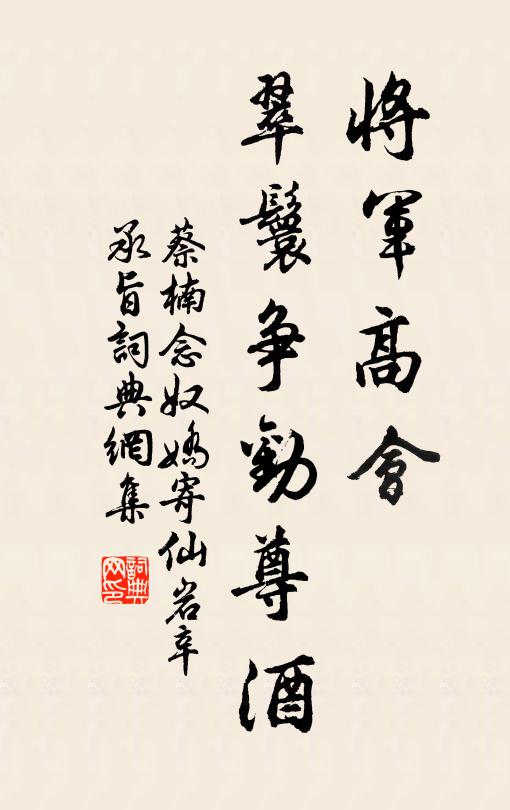 將軍高會
翠鬟争勸尊酒
蔡楠念奴嬌寄仙岩辛
承旨詞典網集
詞典网印